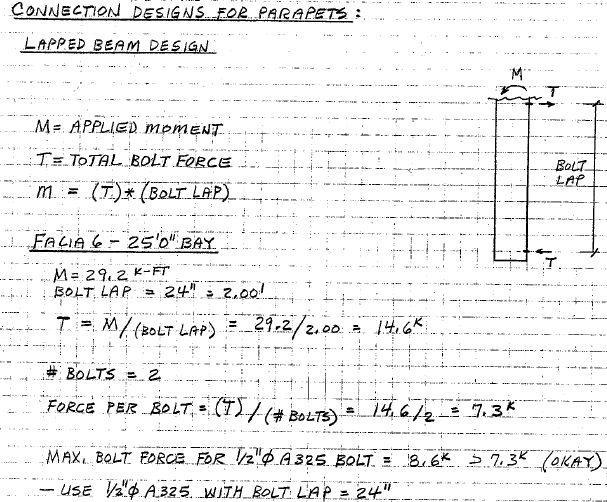 CONNECTION DESIGNS FOR PARAPETS:
LAPPED BEAM DESIGN
M
T
M= APPLIED MOMENT
T= TOTAL BOLT FORCE
BOLT
LAP
M = (T)*(BOLT LAP)
FACIA 6 - 25'0" BAY
T
M= 29.2 K-FT
BOLT LAP = 24" = 2.00'
T = M/(BOLT LAP) = 29.2/2.00 = 14.6K
# BOLTS = 2
FORCE PER BOLT = (T)/(# BOLTS) = 14.6/2 = 7.3K
MAX. BOLT FORCE FOR 1/2"φ A325 BOLT = 8.6K > 7.3K (OKAY)
- USE 1/2"φ A325 WITH BOLT LAP = 24"